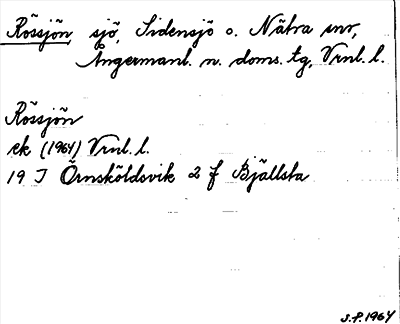 Rössjön sjö, Sidensjö o. Nätra snr,
Ångermanl. n. doms. tg, Vrnl. l.
Rössjön
ek (1964) Vrnl. l.
19 J Örnsköldsvik 2 f Bjällsta
S.F. 1964